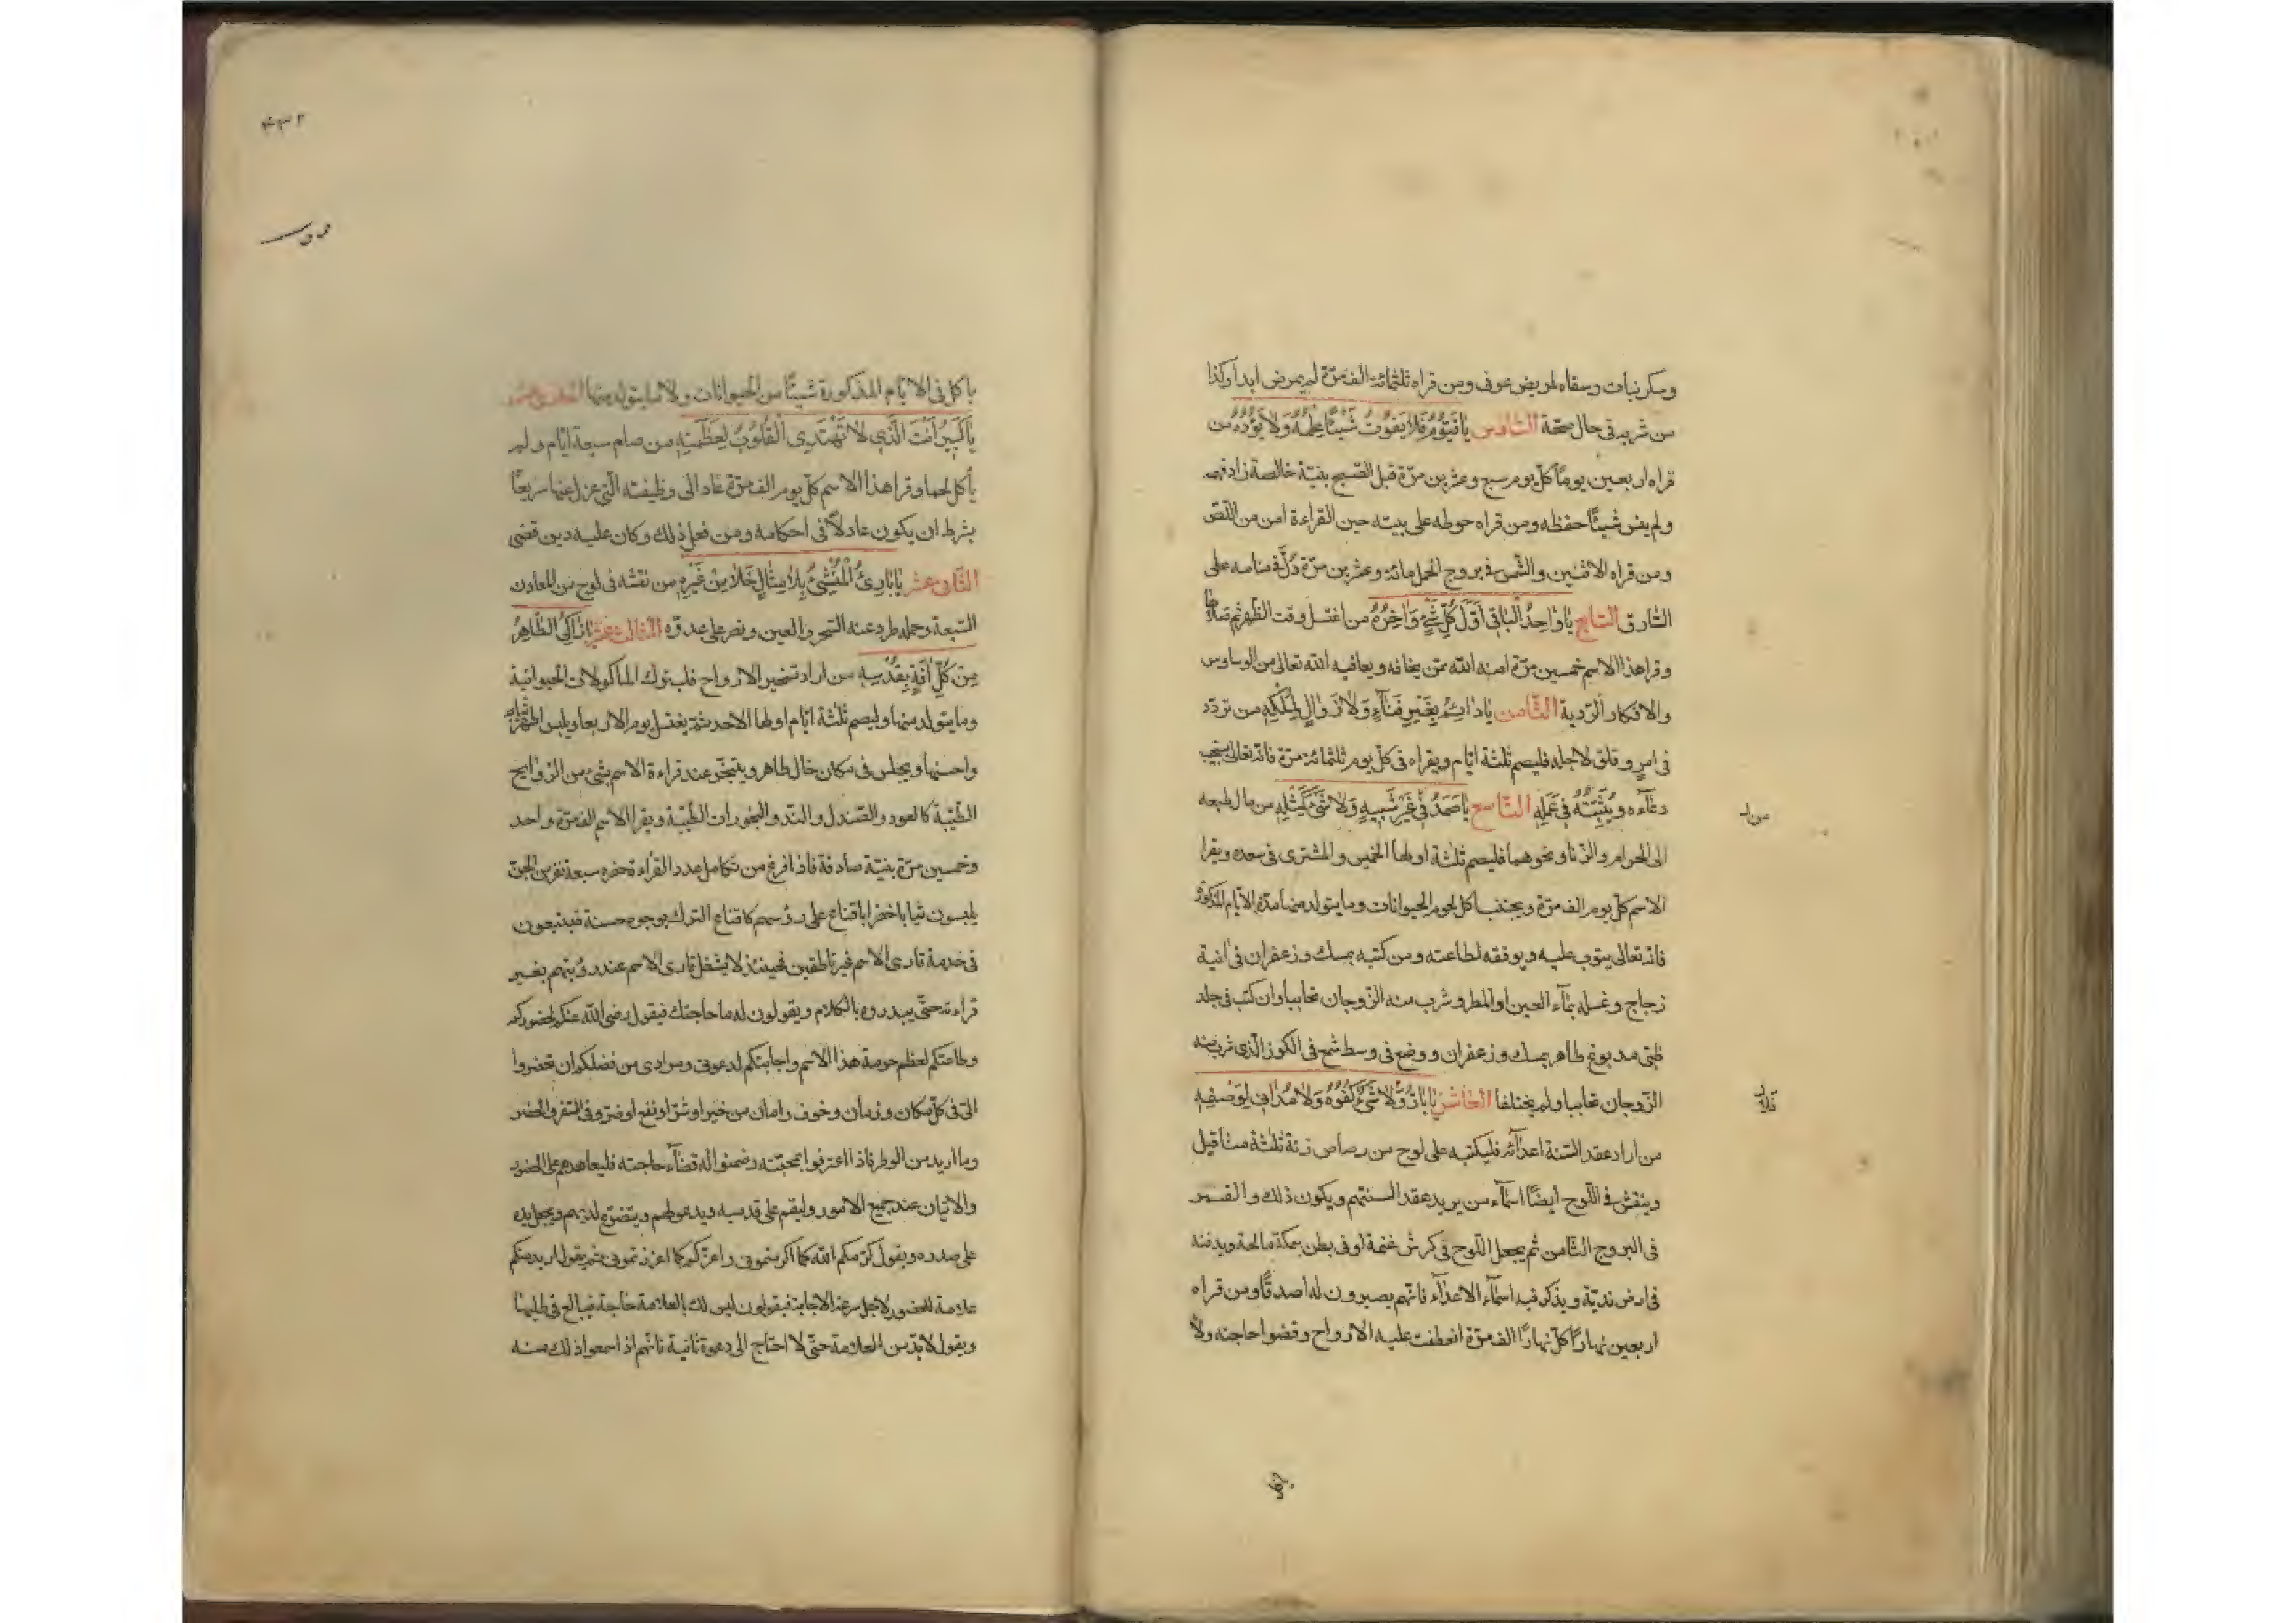 وسكر نبات وسقاه لمريض عوفى ومن قراه ثلثمائة الف مرّة لم يمرض ابدا وكذا
من شربه فى حال صحّة السّادس يَا قَيّوُمُ فَلا يَفوُتُ شَيْئًا عِلْمُهُ وَلا يَؤُدُهُ من
قراه اربعين يومًا كلّ يوم سبع وعشرين مرّة قبل الصّبح بنيّة خالصة زاد فهمه
ولم ينس شيئًا حفظه ومن قراه حوطه على بيته حين القراءة امن من اللّص
ومن قراه الاثنين والشّمس فى بروج الحمل مائة وعشرين مرّة دُلَّ فى منامه على
السّارق السّابع يَا وَاحِدُ الْبَاقِى اَوَّلَ كُلِّ شَىْءٍ وَاخِرُهُ من اغتسل وقت الظهر ثم صلاها
وقرا هذا الاسم خمسين مرّة امنه الله ممّن يخافه ويعافيه الله تعالى من الوساوس
والافكار الرّدية الثّامن يَا دَائِمُ بِغَيْرِ فَنَآءٍ وَلا زَوَالٍ لِمُلْكِهِ من تردّد
فى امرٍ وقلق لاجله فليصم ثلثة ايّام ويقراه فى كلّ يوم ثلثمائة مرّة فانّه تعالى يستجيب
دعآءه ويُثَبِّتُهُ فى عَمَلِهِ التّاسع يَا صَمَدُ فى غَيْرِ شَبيهٍ وَلا شَىْءَ كَمِثْلِهِ من مال طبعه
الى الحرام والزّنا ونحوهما فليصم ثلثة اولها الخميس والمشترى فى سعده ويقرا
الاسم كلّ يوم الف مرّة ويجتنب اكل لحوم الحيوانات وما يتولد منها مدّة الايّام المذكورة
فانّه تعالى يتوب عليه ويوفقه لطاعته ومن كتبه بمسك وزعفران فى انية
زجاج وغسله بمآء العين او المطر وشرب منه الزّوجان تحاببا وان كتب فى جلد
ظبى مدبوغ طاهر بمسك وزعفران ووضع فى وسط شمع فى الكوز الّذى شرب منه
الزّوجان تحاببا ولم يختلفا العاشر يَا بَارُّ وَلا شَىْءَ كُفْوُهُ وَلا مُدَانِىَ لِوَصْفِهِ
من اراد عقد السنة اعدآئه فليكتبه على لوح من رصاص زنة ثلثة مثاقيل
وينقش فى اللّوح ايضًا اسمآء من يريد عقد السنتهم ويكون ذلك والقمر
فى البروج الثّامن ثم يجعل اللّوح فى كرش غنمة او فى بطن سمكة مالحة ويدفنه
فى ارض نديّة ويذكر فيه اسمآء الاعدآء فانّهم يصيرون له اصدقًا ومن قراه
اربعين نهارًا كلّ نهارًا الف مرّة انعطفت عليه الارواح وقضوا حاجته ولا
يأكل فى الايّام المذكورة شيئًا من الحيوانات ولا ممّا يتولد منها الحادى عشر
يَا كَبيرُ اَنْتَ الَّذى لا تَهْتَدِى الْقُلوُبُ لِعَظَمَتِهِ من صام سبعة ايّام ولم
يأكل لحما وقرا هذا الاسم كلّ يوم الف مرّة عاد الى وظيفته الّتى عزل عنها سريعًا
بشرط ان يكون عادلًا فى احكامه ومن فعل ذلك وكان عليه دين قضى
الثّانى عشر يَا بَارِئُ الْمُنْشِئُ بِلا مِثَالٍ خَلا مِنْ غَيْرِهِ من نقشه فى لوح من المعادن
السّبعة وحمله طرد عنه السّحر والعين ونصر على عدوّه الثّالث عشر يَا زَاكِى الطَّاهِرُ
مِنْ كُلِّ افَةٍ بِقُدْسِهِ من اراد تسخير الارواح فليترك المأكولات الحيوانية
وما يتولد منها وليصم ثلثة ايّام اولها الاحد ثم يغتسل يوم الاربعا ويلبس اطهر ثيابه
واحسنها ويجلس فى مكان خال طاهر ويتبخّر عند قراءة الاسم بشىء من الرّوايح
الطّيّبة كالعود والصّندل والنّد والبخورات الطّيّبة ويقرا الاسم الف مرّة واحد
وخمسين مرّة بنيّة صادقة فاذا فرغ من تكامل عدد القراءة تحضره سبعة نفر من الجنّ
يلبسون ثيابا خضرا باقناع على رؤسهم كاقناع الترك بوجوه حسنة فينتبعون
فى خدمة قارى الاسم غير ناطقين فحينئذ لا يشغل قارى الاسم عند رؤيتهم بغير
قراءته حتّى يبدروه بالكلام ويقولون له ما حاجتك فيقول رضى الله عنكم لحضوركم
وطاعتكم لعظم حرمة هذا الاسم واجابتكم لدعوتى ومرادى من فضلكم ان تحضروا
الىّ فى كلّ مكان وزمان وخوف وامان من خير او شرّ او نفع او ضرّ وفى السّفر والحضر
وما اريد من الوطر فاذا اعترفوا بمحبّته وضمنوا له قضآء حاجته فليعاهدهم على الحضور
والاتيان عند جميع الامور وليقم على قدميه ويدعو لهم ويتضرّع لديهم ويجعل يده
على صدره ويقول كرّمكم الله كما اكرمتمونى واعزّكم كما اعززتمونى ثم يقول اريد منكم
علامة للحضور لاجل سرعة الاجابة فيقولون ليس لك بالعلامة حاجة فيبالغ فى طلبها
ويقول لا بدّ من العلامة حتّى لا احتاج الى دعوة ثانية فانّهم اذ اسمعوا ذلك منه